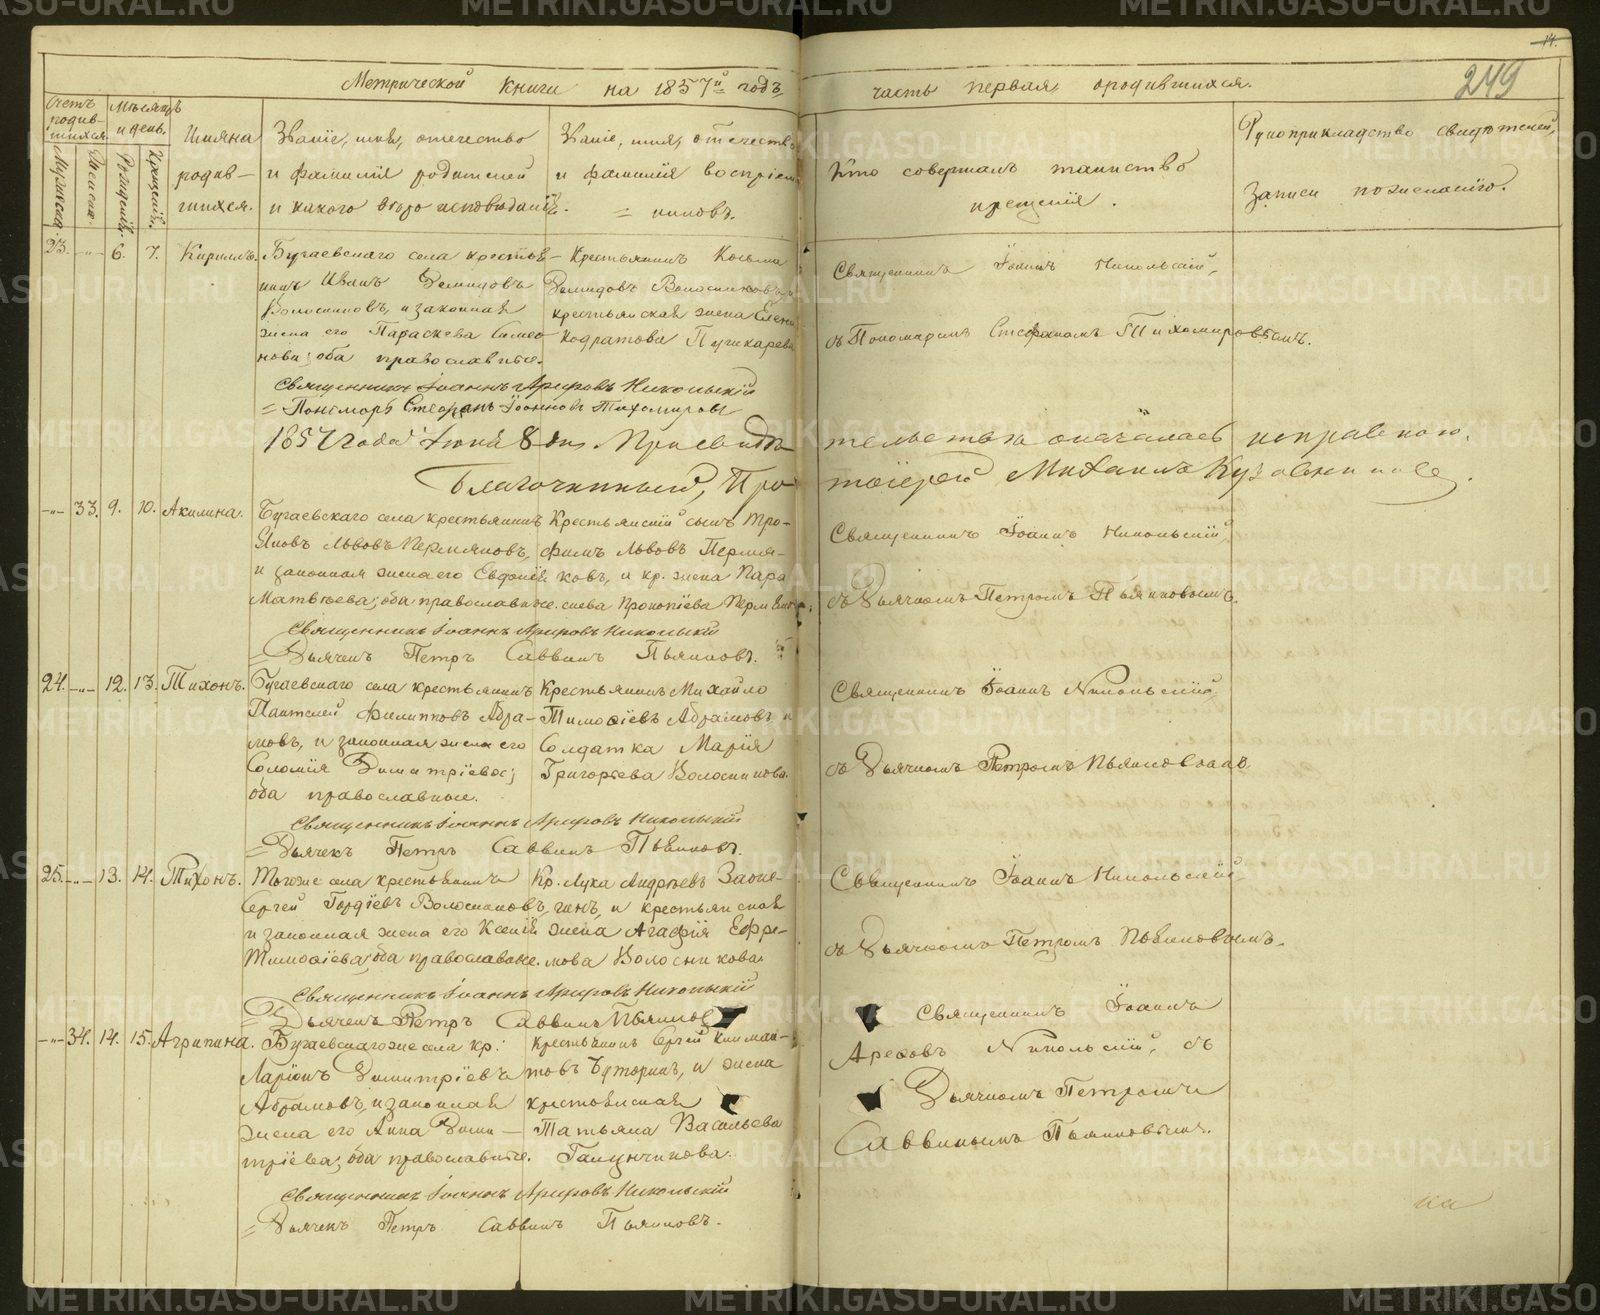 14.
249
Метрической книги на 1857й годъ,
часть первая, о родившихся.
Счетъ родив-шихся.
Мужеска.
Женска.
Мѣсяцъ и день.
Рожденія.
Крещенія.
Имяна родив-шихся.
Званіе, имя, отчество
и фамилія родителей
и какого вѣроисповѣданія.
Званіе, имя, отчество
и фамилія воспріем-
= никовъ.
Кто совершалъ таинство
крещенія.
Рукоприкладство свидѣтелей,
записи по желанію.
23. -"- 6. 7. Кириллъ.
Бугаевскаго села крестья-
нинъ Иванъ Демидовъ
Волосниковъ, и законная
жена его Параскева
нова; оба православные.
Крестьянинъ Косьма
Демидовъ Волосниковъ, и
крестьянская жена Елена
Кодратова Пушкарева
Священникъ Іоаннъ Никольскій,
съ Пономаремъ Стефаномъ Тихомировымъ.
Священникъ Іоаннъ Арефовъ Никольскій
= Пономарь Стефанъ Іоанновъ Тихомировъ
1857 года Іюня 8 дня. При свидѣ-
тельствѣ оказалась исправною.
Благочинный, Про-
тоіерей Михаилъ
-"- 33. 9. 10. Акилина.
Бугаевскаго села крестьянинъ
Яковъ Львовъ Пермяковъ,
и законная жена его Евфимія
Матвѣева; оба православные.
Крестьянскій сынъ Тро-
фимъ Львовъ Пермя-
ковъ, и кр. жена Пара
скева Прокопіева
Священникъ Іоаннъ Никольскій,
съ Дьячкомъ Петромъ Пьянковымъ.
Священникъ Іоаннъ Арефовъ Никольскій
= Дьячекъ Петръ Саввинъ Пьянковъ.
24. -"- 12. 13. Тихонъ.
Бугаевскаго села крестьянинъ
Пантелей Филипповъ Абра-
мовъ, и законная жена его
Соломія Димитріева;
оба православные.
Крестьянинъ Михайло
Тимофіевъ Абрамовъ, и
Солдатка Марія
Григорьева Волосникова.
Священникъ Іоаннъ Никольскій,
съ Дьячкомъ Петромъ Пьянковымъ.
Священникъ Іоаннъ Арефовъ Никольскій
= Дьячекъ Петръ Саввинъ Пьянковъ.
25. -"- 13. 14. Тихонъ.
Тогоже села крестьянинъ
Сергей Гордіевъ Волосниковъ,
и законная жена его Ксенія
Тимофіева; оба православные.
Кр. Лука Андреевъ
и крестьянская
жена Агафія Ефре-
мова Волосникова.
Священникъ Іоаннъ Никольскій,
съ Дьячкомъ Петромъ Пьянковымъ.
Священникъ Іоаннъ Арефовъ Никольскій
= Дьячекъ Петръ Саввинъ Пьянков
-"- 34. 14. 15. Агрипина.
Бугаевскагоже села кр:
Ларіонъ Димитріевъ
Абрамовъ, и законная
жена его Анна Дими-
тріева; оба православные.
Крестьянинъ Сергей Климан-
товъ Буторинъ, и жена
крестьянская
Татьяна Васильева
Галунчикова.
Священникъ Іоаннъ
Арефовъ Никольскій, съ
Дьячкомъ Петромъ
Саввинымъ Пьянковымъ.
Священникъ Іоаннъ Арефовъ Никольскій
= Дьячекъ Петръ Саввинъ Пьянковъ.
на
METRIKI.GASO-URAL.RU